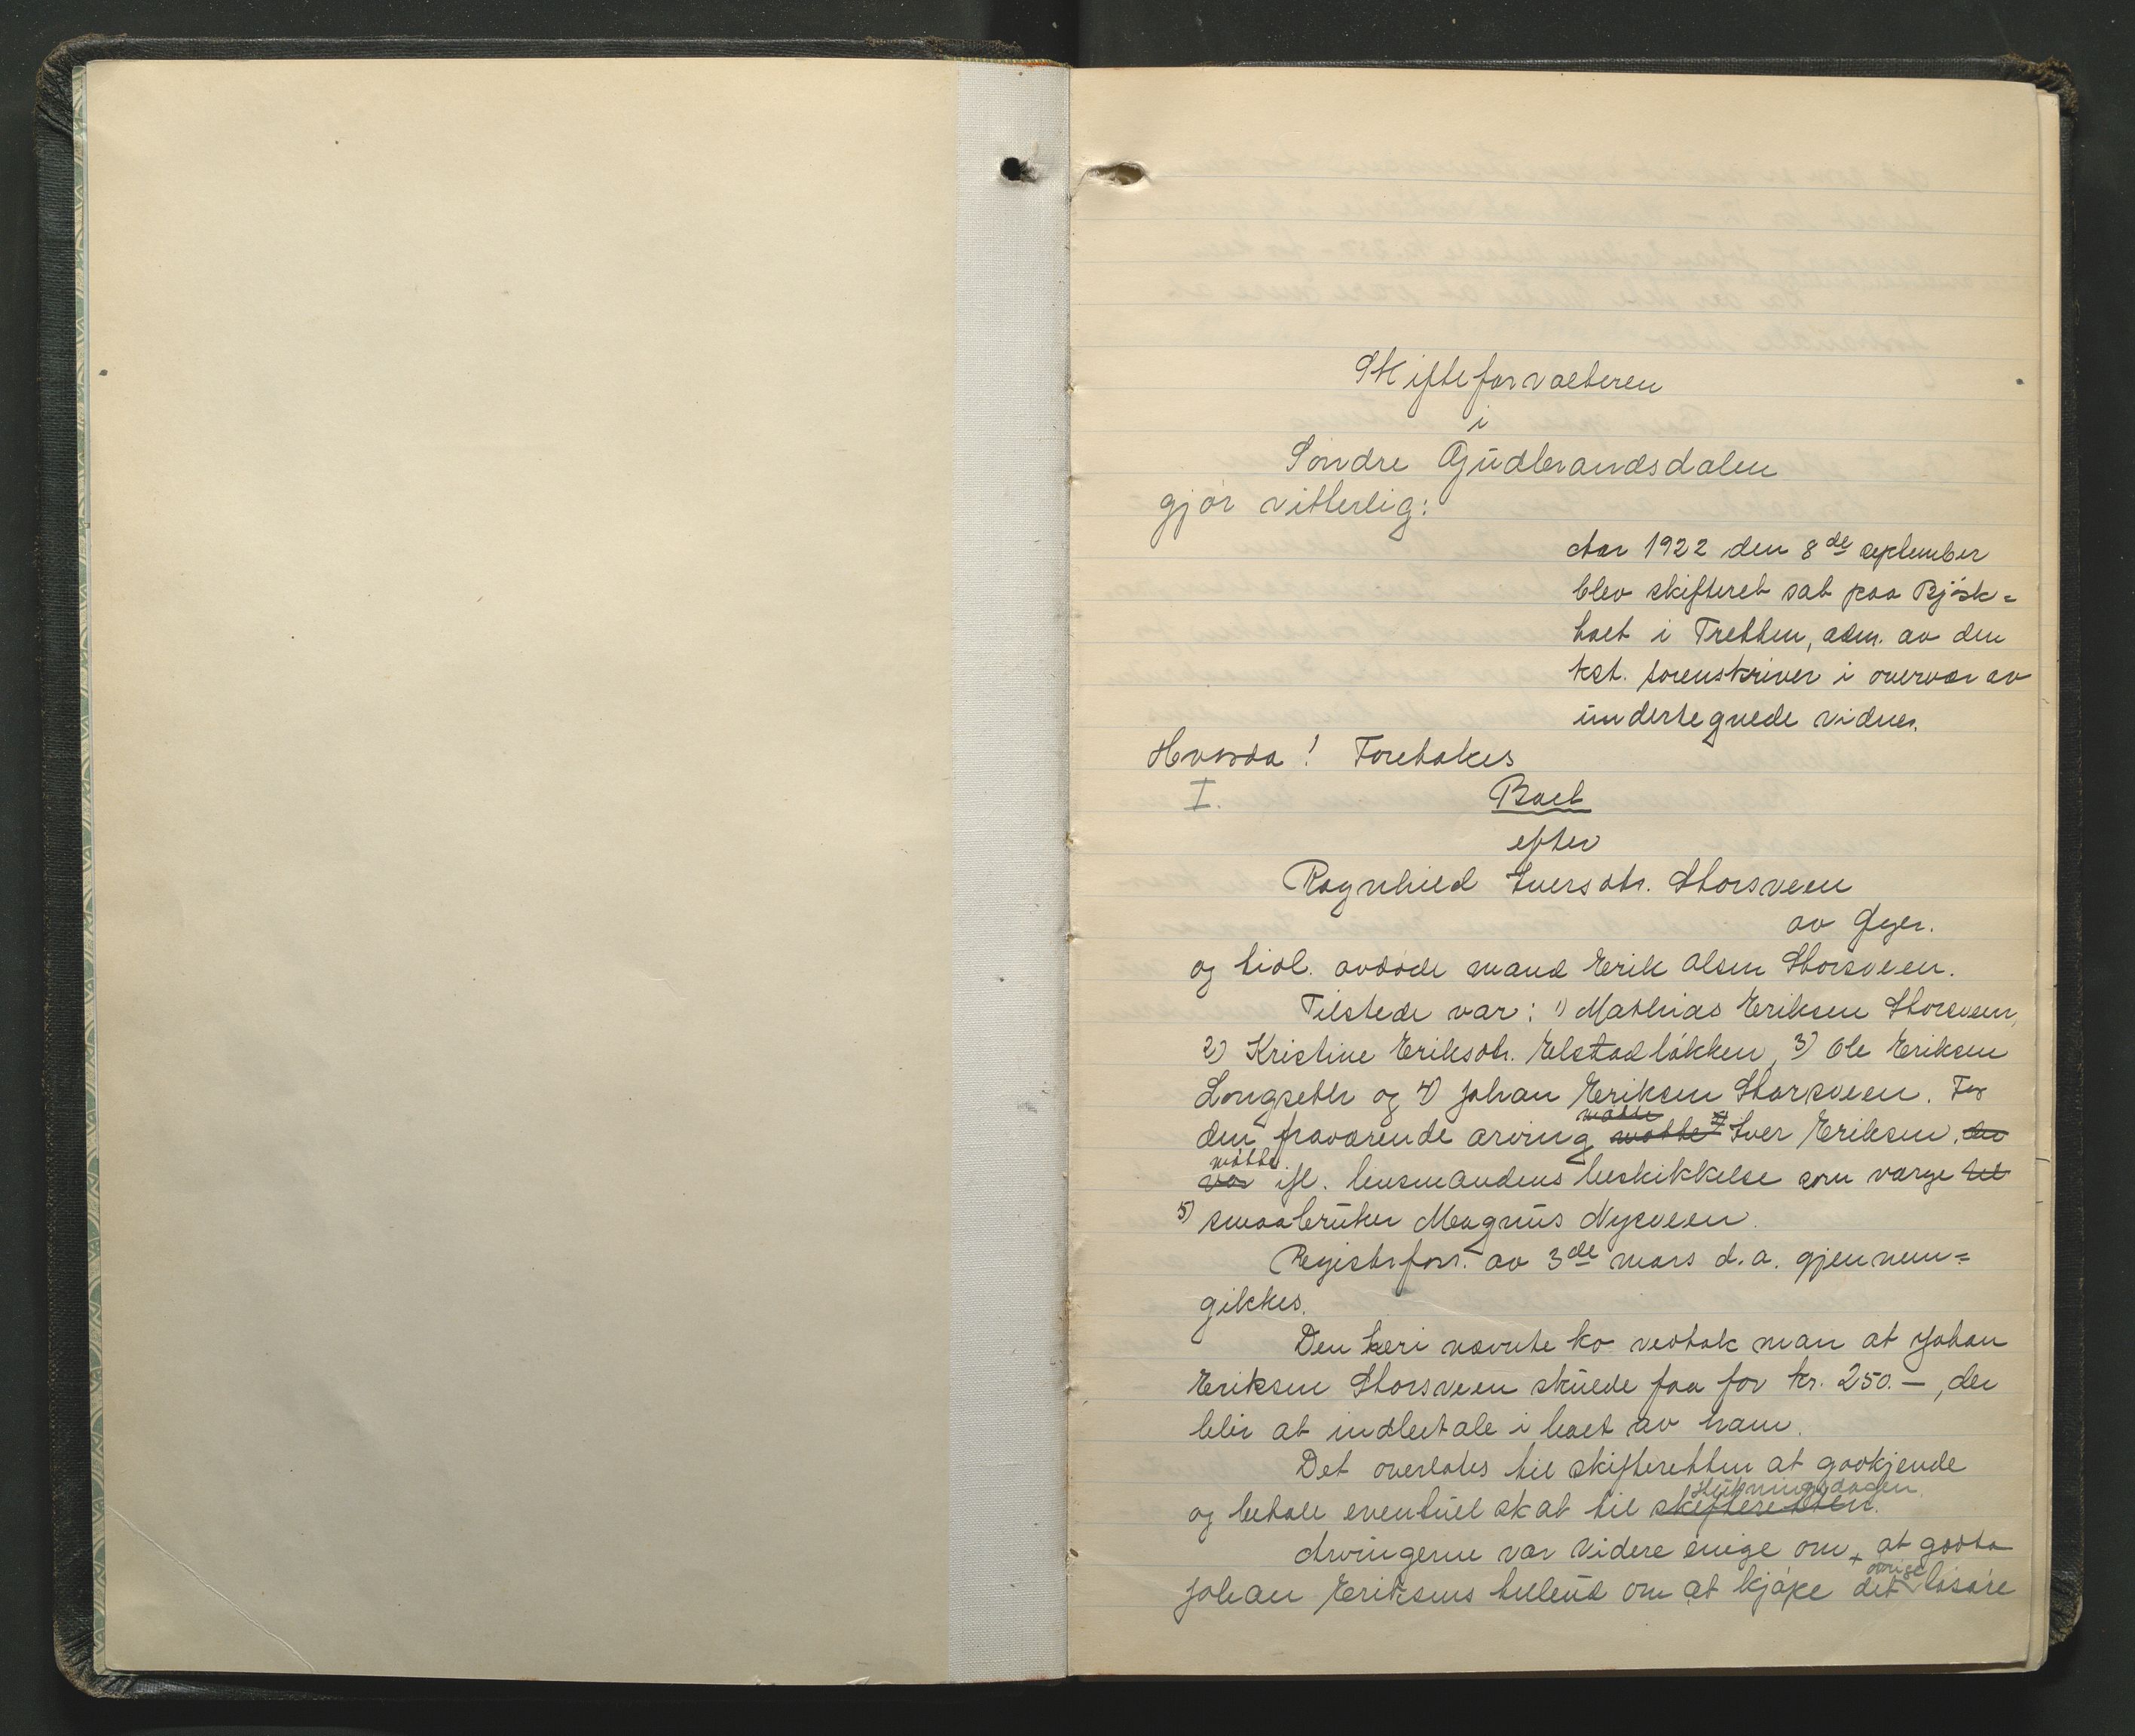 Skifteforvalteren
i
Søndre Gudbrandsdalen
gjør vitterlig:
Aar 1922 den 8de september
blev skifteret sat paa Bjørk=
haet i Tretten, adm. av den
kst. sorenskriver i overvær av
undertegnede vidner.
Hvorda! Foretokes
I. Boet
efter
Ragnhild Iversdtr. Storsveen
av Øyer.
og tidl. avdøde mand Erik Olsen Storsveen.
Tilstede var: 1) Mathias Eriksen Storsveen,
2) Kristine Eriksdtr. Elstadløkken, 3) Ole Eriksen
Longseth og 4) Johan Eriksen Storsveen. For
den fraværende arving møtte Iver Eriksen, der
møtte
var ifl. lensmandens beskikkelse som værge til
5) smaabruker Magnus Nysveen.
Registrforr. av 3de mars d.a. gjennem=
gikkes.
Den heri nævnte ko vedtok man at Johan
Eriksen Storsveen skulde faa for kr. 250.–, der
blir at indbetale i boet av ham.
Det overlates til skifteretten at godkjende
slutningsdagen.
og betale eventuel skat til skifteretten.
Arvingerne var videre enige om at godta
øvrige
Johan Eriksens tilbud om at kjøpe det løsøre